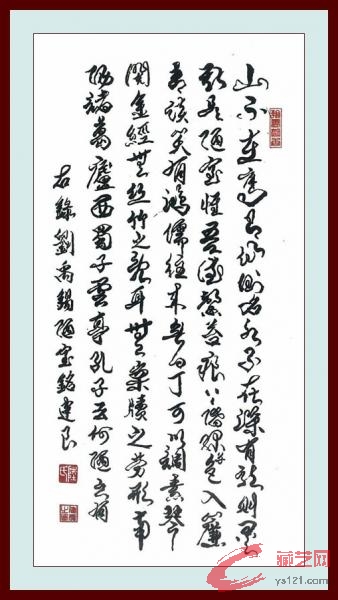 山不在高有仙則名水不在深有龍則靈
斯是陋室惟吾德馨苔痕上階綠草色入簾
青談笑有鴻儒往來無白丁可以調素琴
閱金經無絲竹之亂耳無案牘之勞形南
陽諸葛廬西蜀子雲亭孔子云何陋之有
右錄劉禹錫陋室銘建
藏艺网
ys121.com